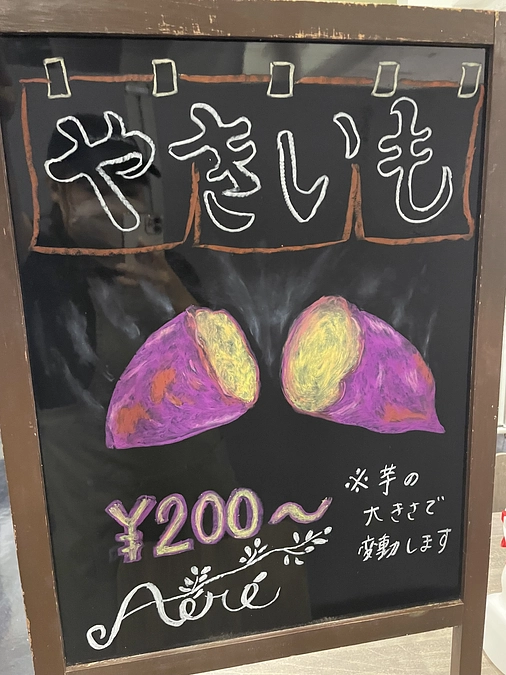 やきいも
¥200～
※芋の
大きさで
変動します
Aéré